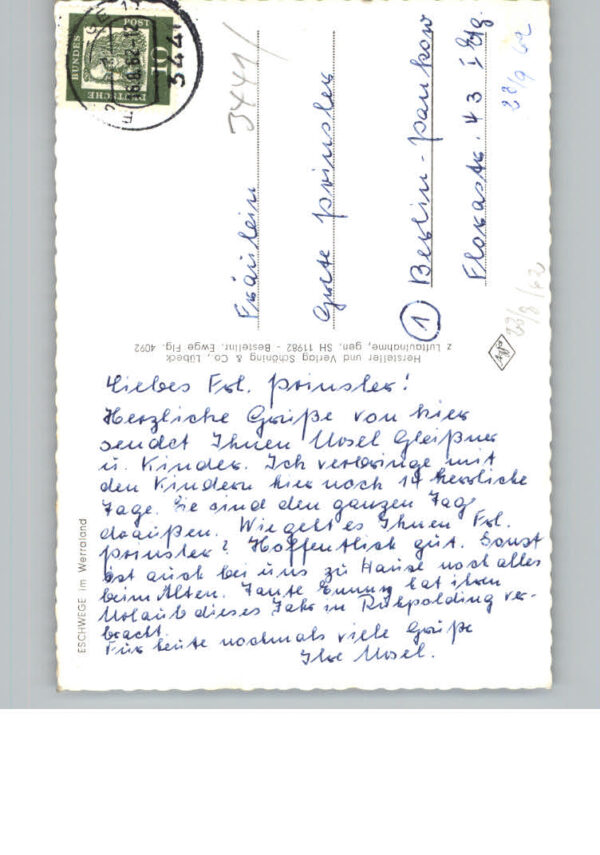 Liebes Frl. Prinsler!
Herzliche Grüße von hier
sendet Ihnen Ursel Gleißner
u. Kinder. Ich verbringe mit
den Kindern hier noch 14 herrliche
Tage. Sie sind den ganzen Tag
draußen. Wie geht es Ihnen Frl.
Prinsler? Hoffentlich gut. Sonst
ist auch bei uns zu Hause noch alles
beim Alten. Tante Emmy hat ihren
Urlaub dieses Jahr in Ruhpolding ver-
bracht.
Für heute nochmals viele Grüße
Ihre Ursel.
Fräulein
Grete Prinsler
1 Berlin-Pankow
Florastr. 43
3441/
22/9 62
23/8/62
DEUTSCHE
BUNDES
POST
10
3441
Hersteller und Verlag Schöning & Co., Lübeck
z Luftaufnahme, gen. SH 11982 - Bestellnr. Ewge Flg. 4092
ESCHWEGE im Werraland